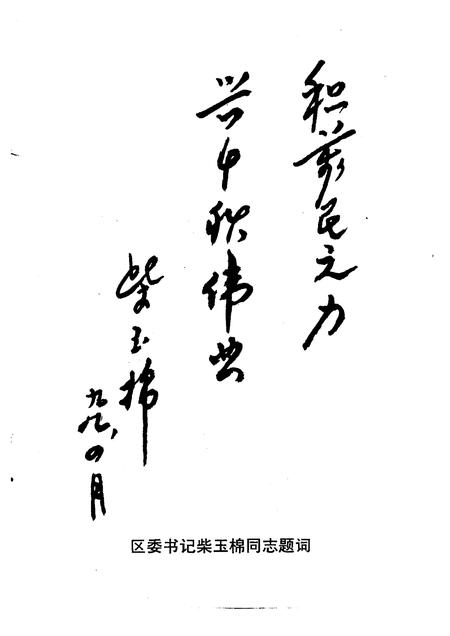 积萬民之力
兴千秋伟业
柴玉棉
九八,四月
区委书记柴玉棉同志题词